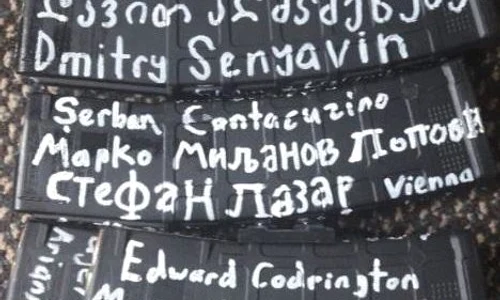 დავით
Dmitry Senyavin
Şerban Cantacuzino
Марко Миљанов Попови
Стефан Лазар Vienna
Edward Codrington